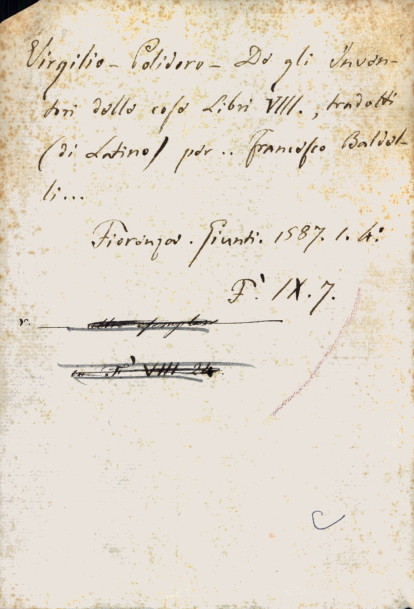 Virgilio - Polidoro - De gli Inven-
tori delle cose Libri VIII., tradotti
(di Latino) per .. Francesco Baldel-
li...
Fiorenza. Giunti. 1587. 1. 4:
F. IX. 7.
v.
altro esemplare
in F. VIII 24.